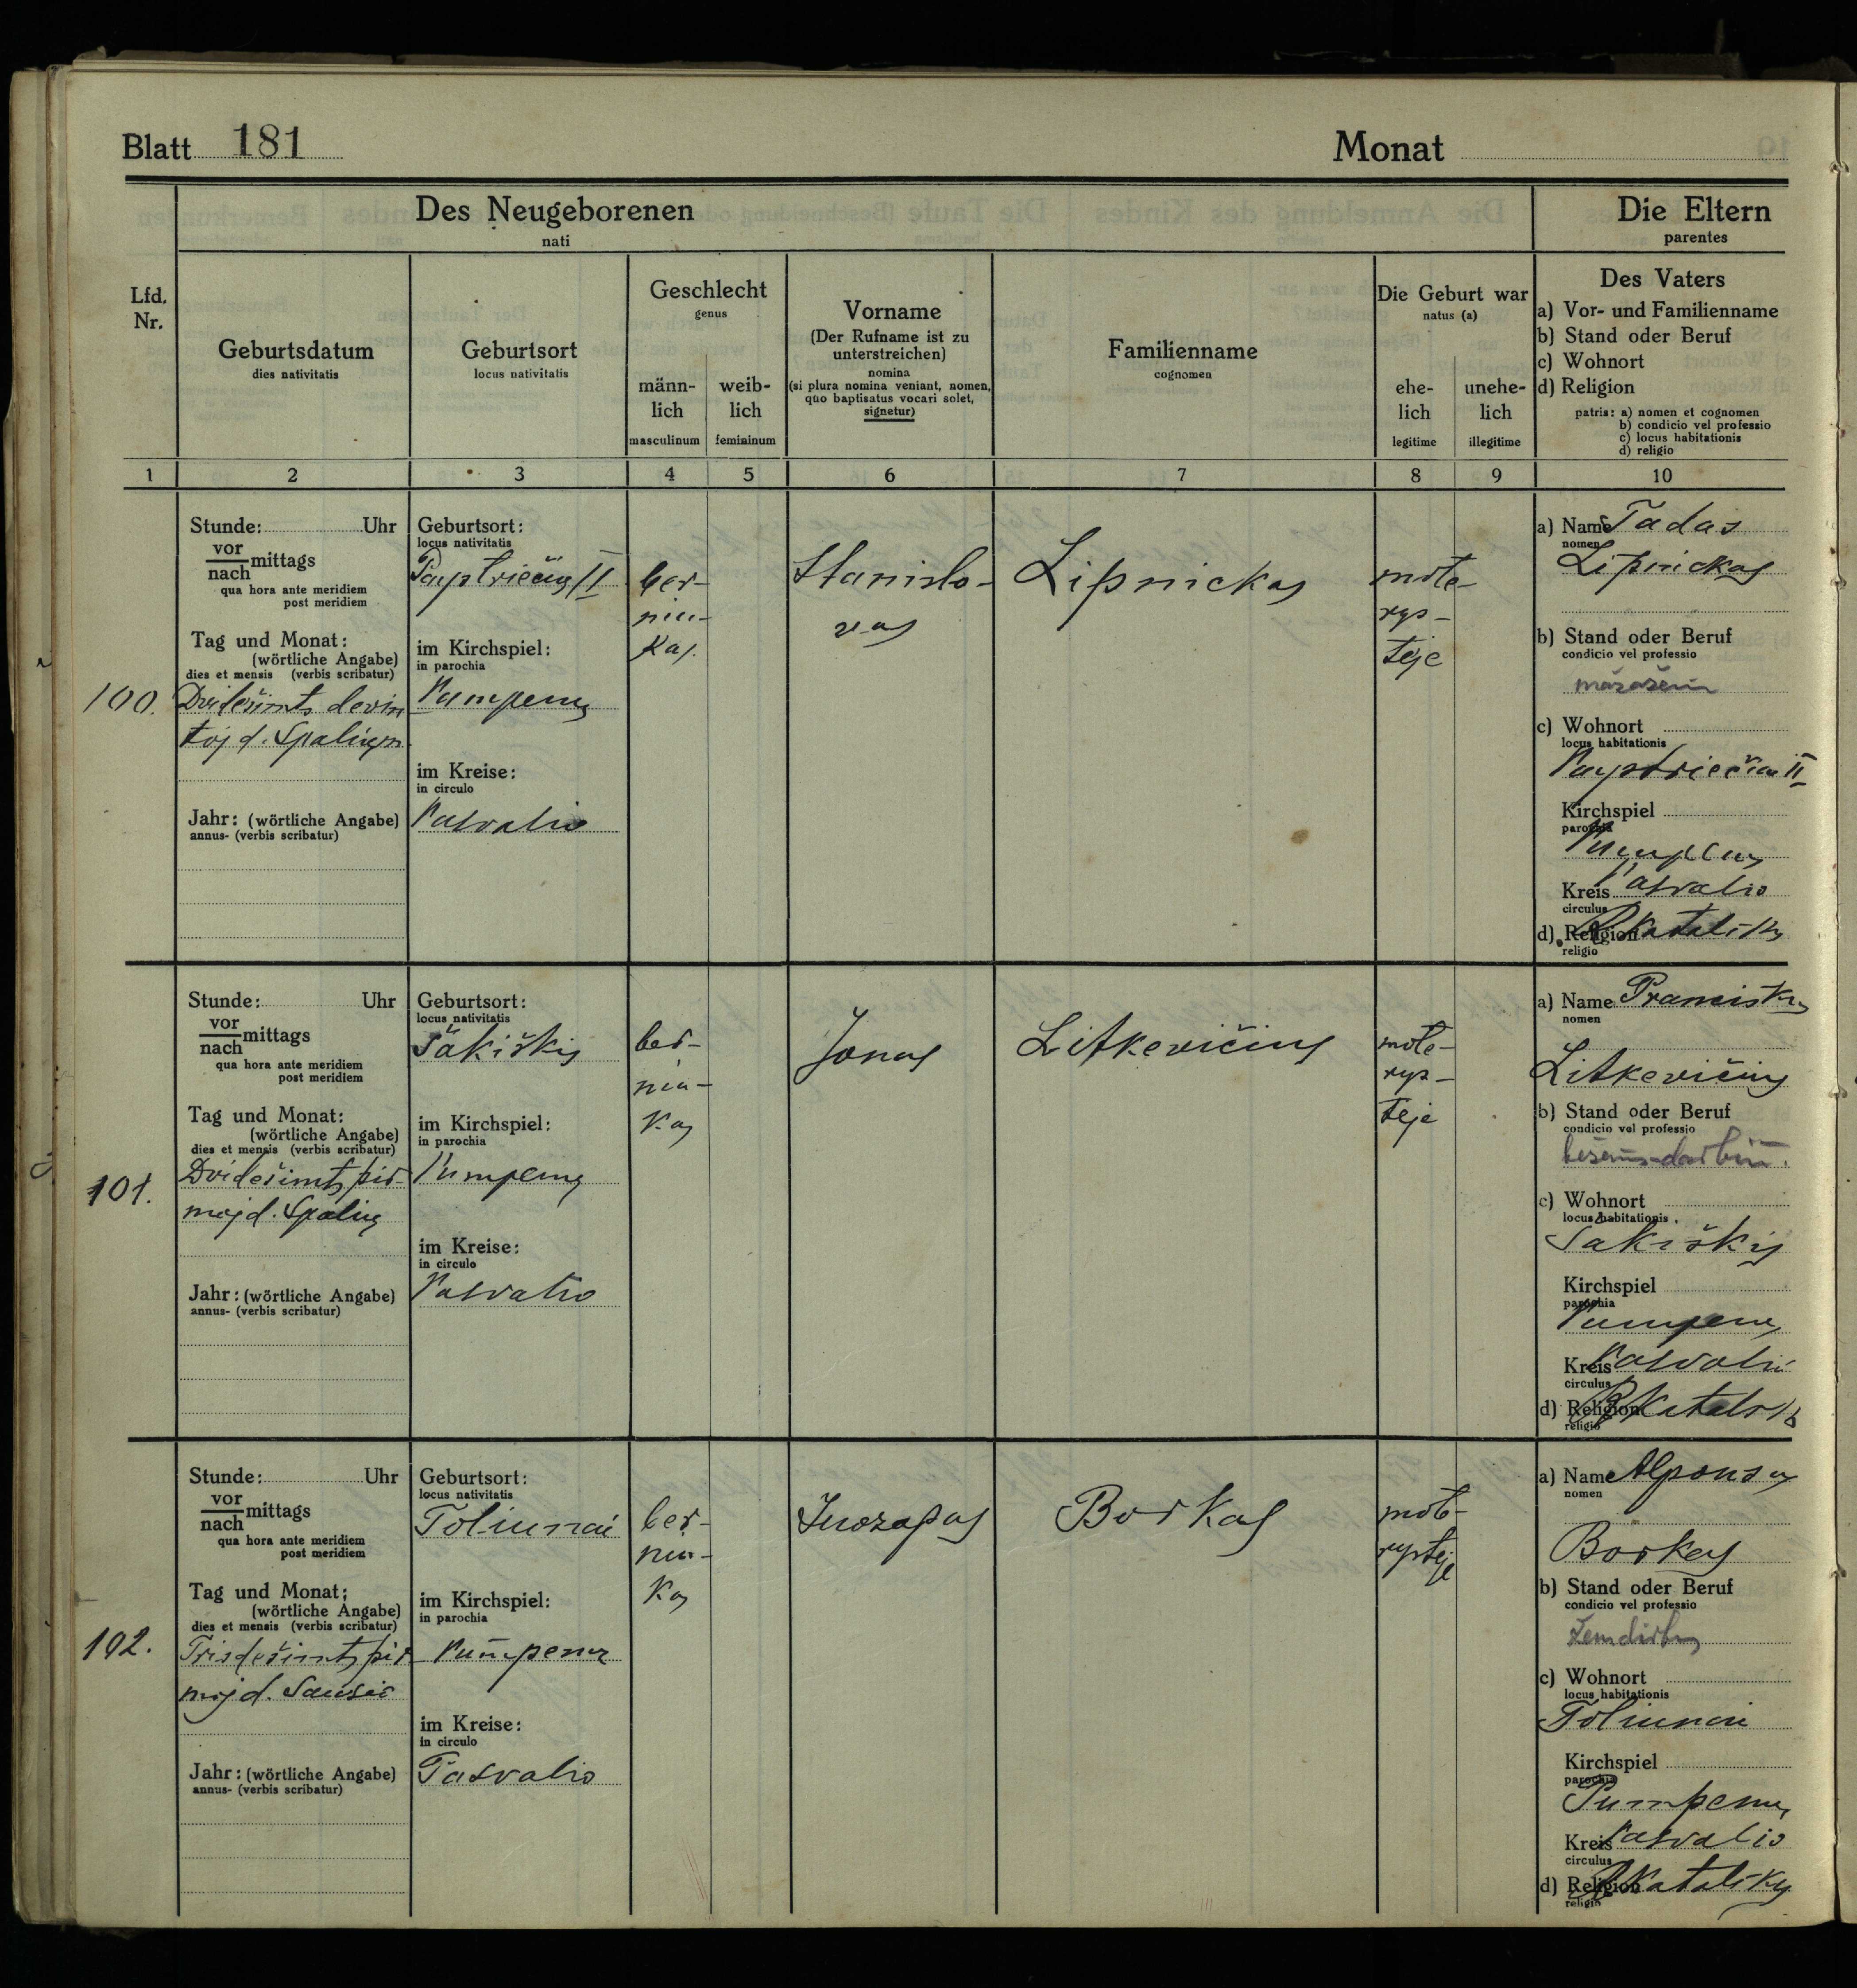 Blatt 181
Monat
Des Neugeborenen
nati
Die Eltern
parentes
Lfd.
Nr.
Geburtsdatum
dies nativitatis
Geburtsort
locus nativitatis
Geschlecht
genus
männ-
lich
masculinum
weib-
lich
femininum
Vorname
(Der Rufname ist zu
unterstreichen)
nomina
(si plura nomina veniant, nomen,
quo baptisatus vocari solet,
signetur)
Familienname
cognomen
Die Geburt war
natus (a)
ehe-
lich
legitime
unehe-
lich
illegitime
Des Vaters
a) Vor- und Familienname
b) Stand oder Beruf
c) Wohnort
d) Religion
patris: a) nomen et cognomen
b) condicio vel professio
c) locus habitationis
d) religio
1 2 3 4 5 6 7 8 9 10
100.
Stunde: Uhr
vor
nach mittags
qua hora ante meridiem
post meridiem
Tag und Monat:
(wörtliche Angabe)
dies et mensis (verbis scribatur)
Dvidešimts devin
toj d. Spalių
Jahr: (wörtliche Angabe)
annus- (verbis scribatur)
Geburtsort:
locus nativitatis
II
im Kirchspiel:
in parochia
Pumpėnų
im Kreise:
in circulo
Pasvalio
ber-
niu-
kas.
Stanislo-
vas
Lipnickas
mote-
rys-
tėje
a) Name Tadas
nomen
Lipnickas
b) Stand oder Beruf
condicio vel professio
mažažemis
c) Wohnort
locus habitationis
II
Kirchspiel
parochia
Pumpėnų
Kreis Pasvalio
circulus
d) Religion R Katalikų
religio
101.
Stunde: Uhr
vor
nach mittags
qua hora ante meridiem
post meridiem
Tag und Monat:
(wörtliche Angabe)
dies et mensis (verbis scribatur)
Dvidešimts pir-
moj d. Spalių
Jahr: (wörtliche Angabe)
annus- (verbis scribatur)
Geburtsort:
locus nativitatis
Šakiškis
im Kirchspiel:
in parochia
Pumpėnų
im Kreise:
in circulo
Pasvalio
ber-
niu-
kas
Jonas
Litkevičius
mote-
rys-
tėje
a) Name Pranciškus
nomen
Litkevičius
b) Stand oder Beruf
condicio vel professio
bežemis-darbin.
c) Wohnort
locus habitationis
Šakiškis
Kirchspiel
parochia
Pumpėnų
Kreis Pasvalio
circulus
d) Religion R Katalikų
religio
102.
Stunde: Uhr
vor
nach mittags
qua hora ante meridiem
post meridiem
Tag und Monat:
(wörtliche Angabe)
dies et mensis (verbis scribatur)
Trisdešimts pir-
moj d. Sausio
Jahr: (wörtliche Angabe)
annus- (verbis scribatur)
Geburtsort:
locus nativitatis
Toliunai
im Kirchspiel:
in parochia
Pumpėnų
im Kreise:
in circulo
Pasvalio
ber-
niu-
kas
Juozapas
Borkas
mote-
rystėje
a) Name Alponsas
nomen
Borkas
b) Stand oder Beruf
condicio vel professio
Žemdirbys
c) Wohnort
locus habitationis
Toliunai
Kirchspiel
parochia
Pumpėnų
Kreis Pasvalio
circulus
d) Religion R Katalikų
religio